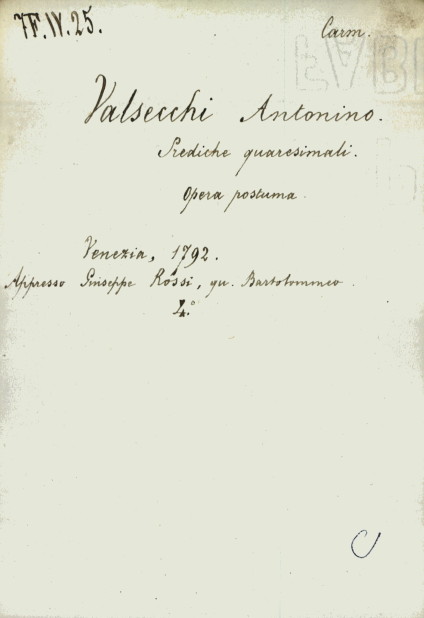 7F.IV.25.
Carm.
Valsecchi Antonino.
Prediche quaresimali.
Opera postuma.
Venezia, 1792.
Appresso Giuseppe Rossi, qu. Bartolommeo.
4.°